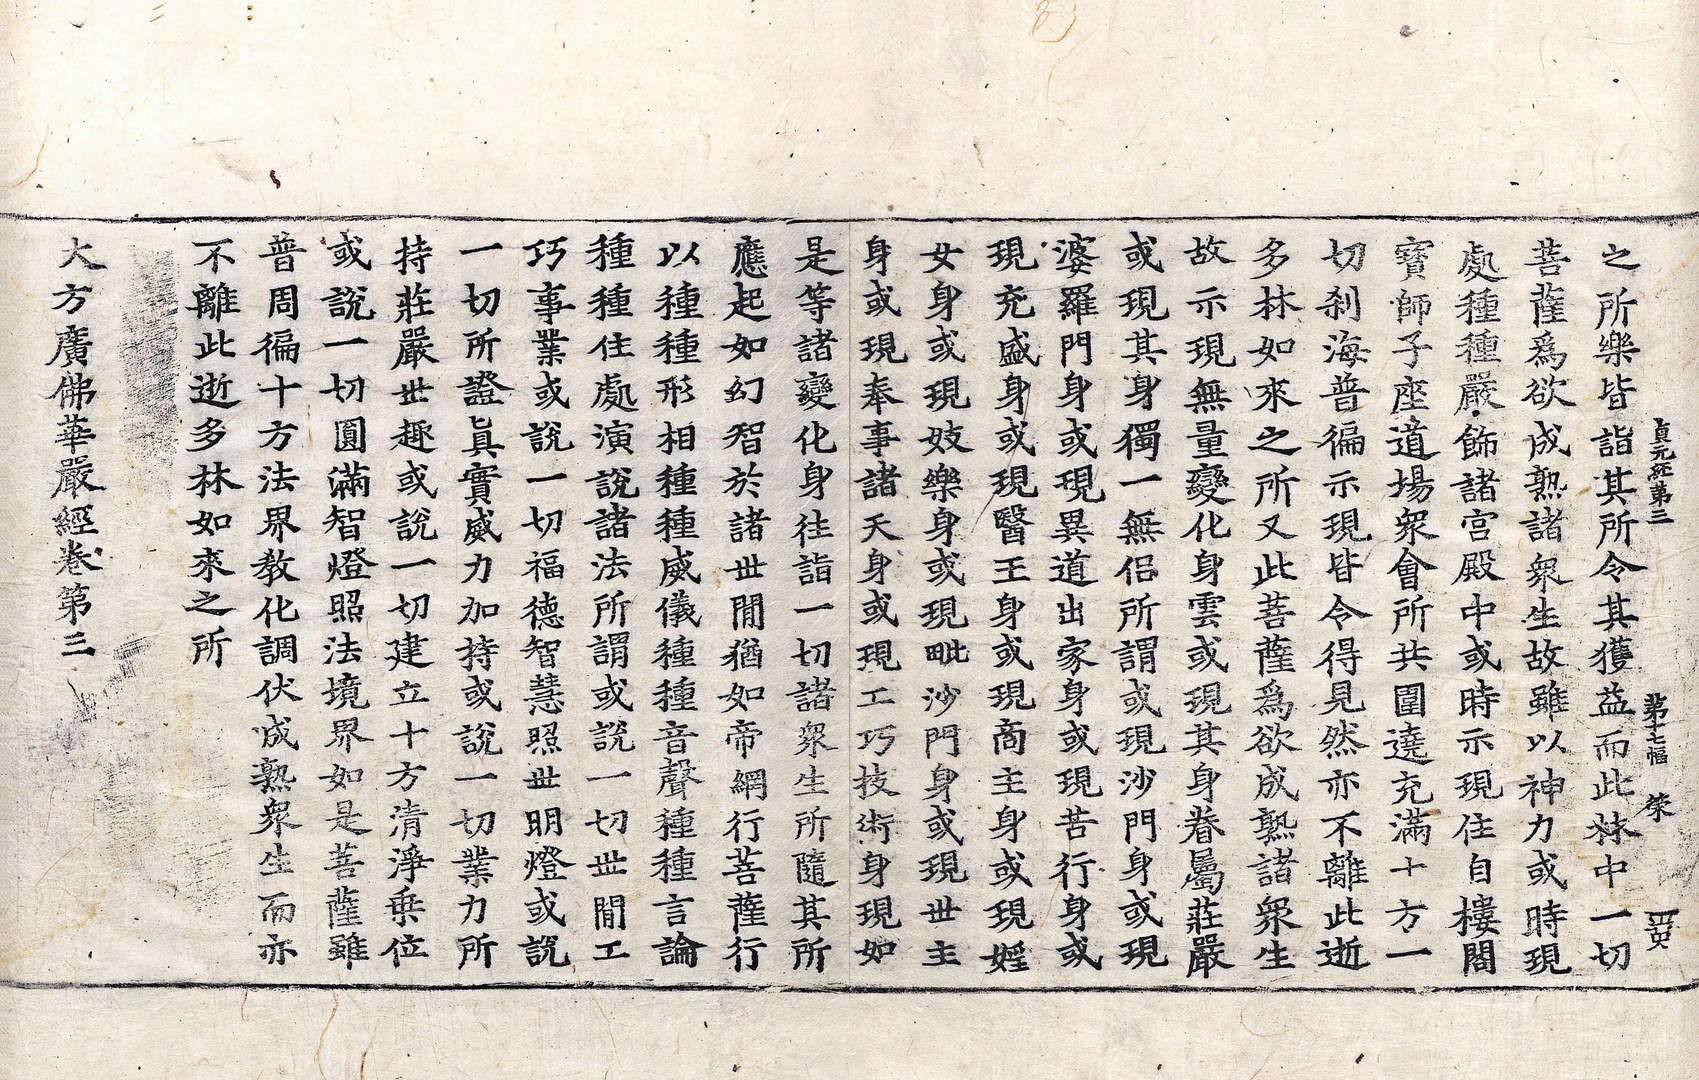 之所樂皆詣其所令其獲益而此林中一切
貞元經第三 第十七幅 榮
菩薩爲欲成熟諸衆生故雖以神力或時現
處種種嚴飾諸宮殿中或時示現住自樓閣
寶師子座道場衆會所共圍遶充滿十方一
切刹海普徧示現皆令得見然亦不離此逝
多林如來之所又此菩薩爲欲成熟諸衆生
故示現無量變化身雲或現其身眷屬莊嚴
或現其身獨一無侶所謂或現沙門身或現
婆羅門身或現異道出家身或現苦行身或
現充盛身或現醫王身或現商主身或現婬
女身或現妓樂身或現毗沙門身或現世主
身或現奉事諸天身或現工巧技術身現如
是等諸變化身往詣一切諸衆生所隨其所
應起如幻智於諸世閒猶如帝網行菩薩行
以種種形相種種威儀種種音聲種種言論
種種住處演說諸法所謂或說一切世閒工
巧事業或說一切福德智慧照世明燈或說
一切所證眞實威力加持或說一切業力所
持莊嚴世趣或說一切建立十方清淨乗位
或說一切圓滿智燈照法境界如是菩薩雖
普周徧十方法界敎化調伏成熟衆生而亦
不離此逝多林如來之所
大方廣佛華嚴經卷第三